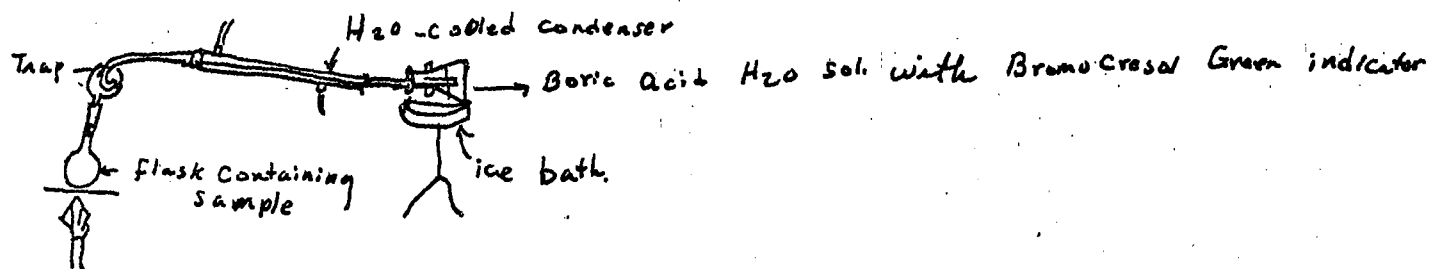 H2O-cooled condenser
Trap
Boric acid H2O sol. with BromoCresol Green indicator
flask containing
sample
ice bath.